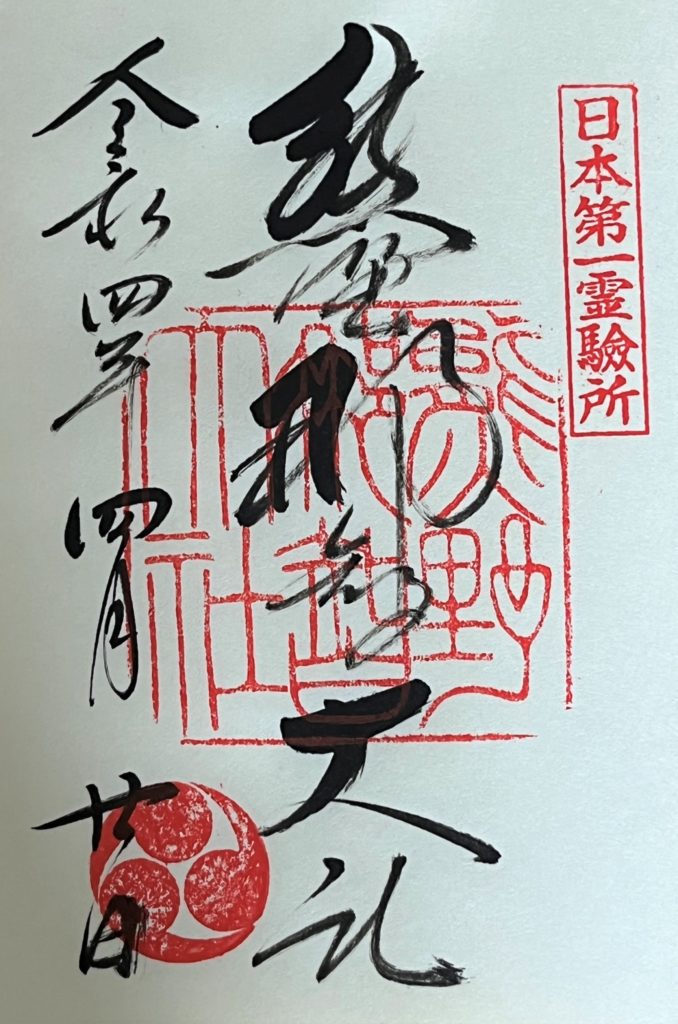 日本第一霊驗所
熊野那智大社
熊野
那智
大社
令和四年 四月 廿日